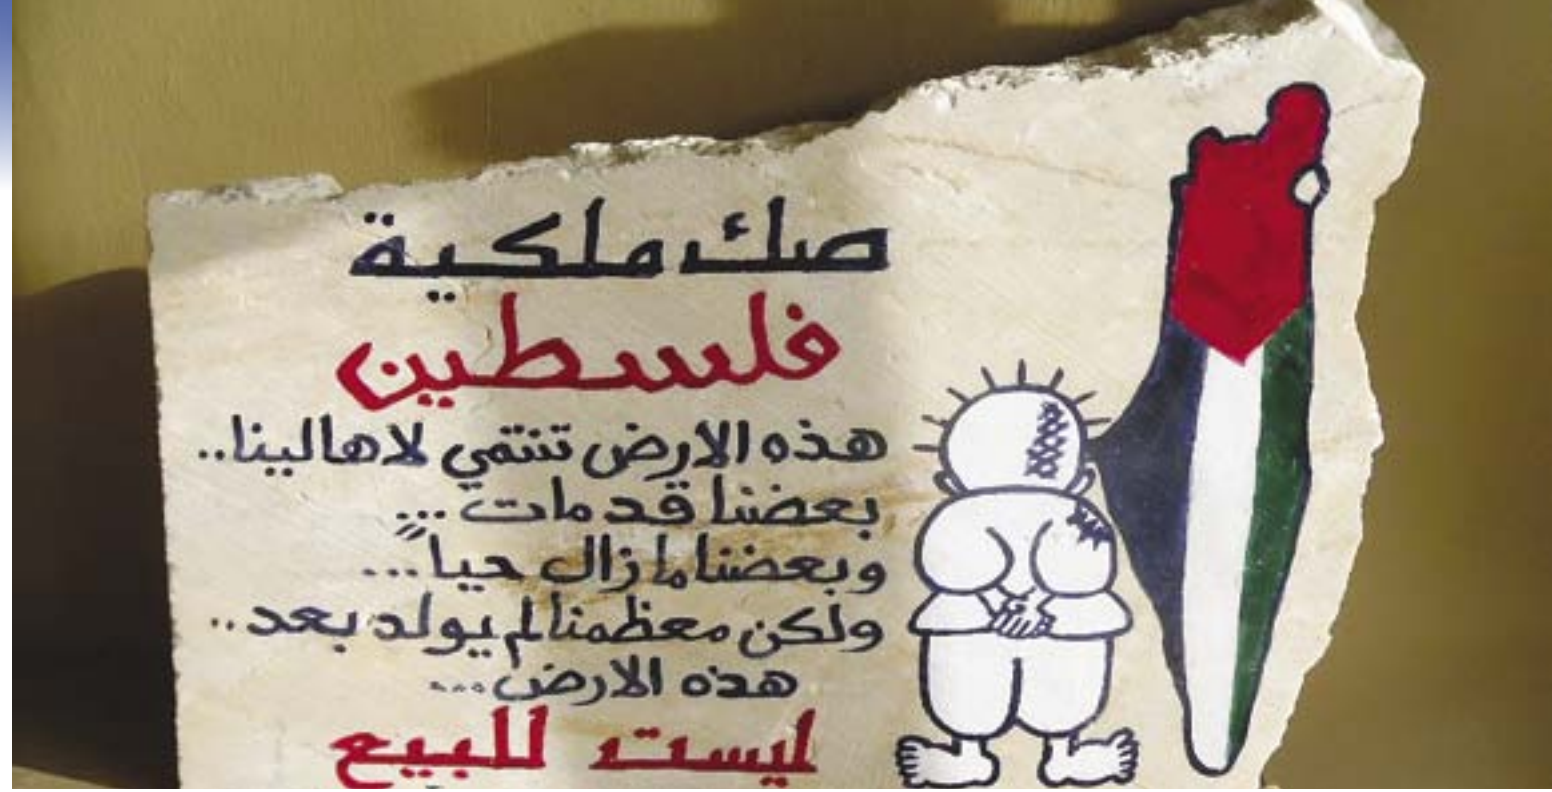 صك ملكية
فلسطين
هذه الارض تنتمي لاهالينا..
بعضنا قد مات...
وبعضنا ما زال حياً...
ولكن معظمنا لم يولد بعد..
هذه الارض...
ليست للبيع